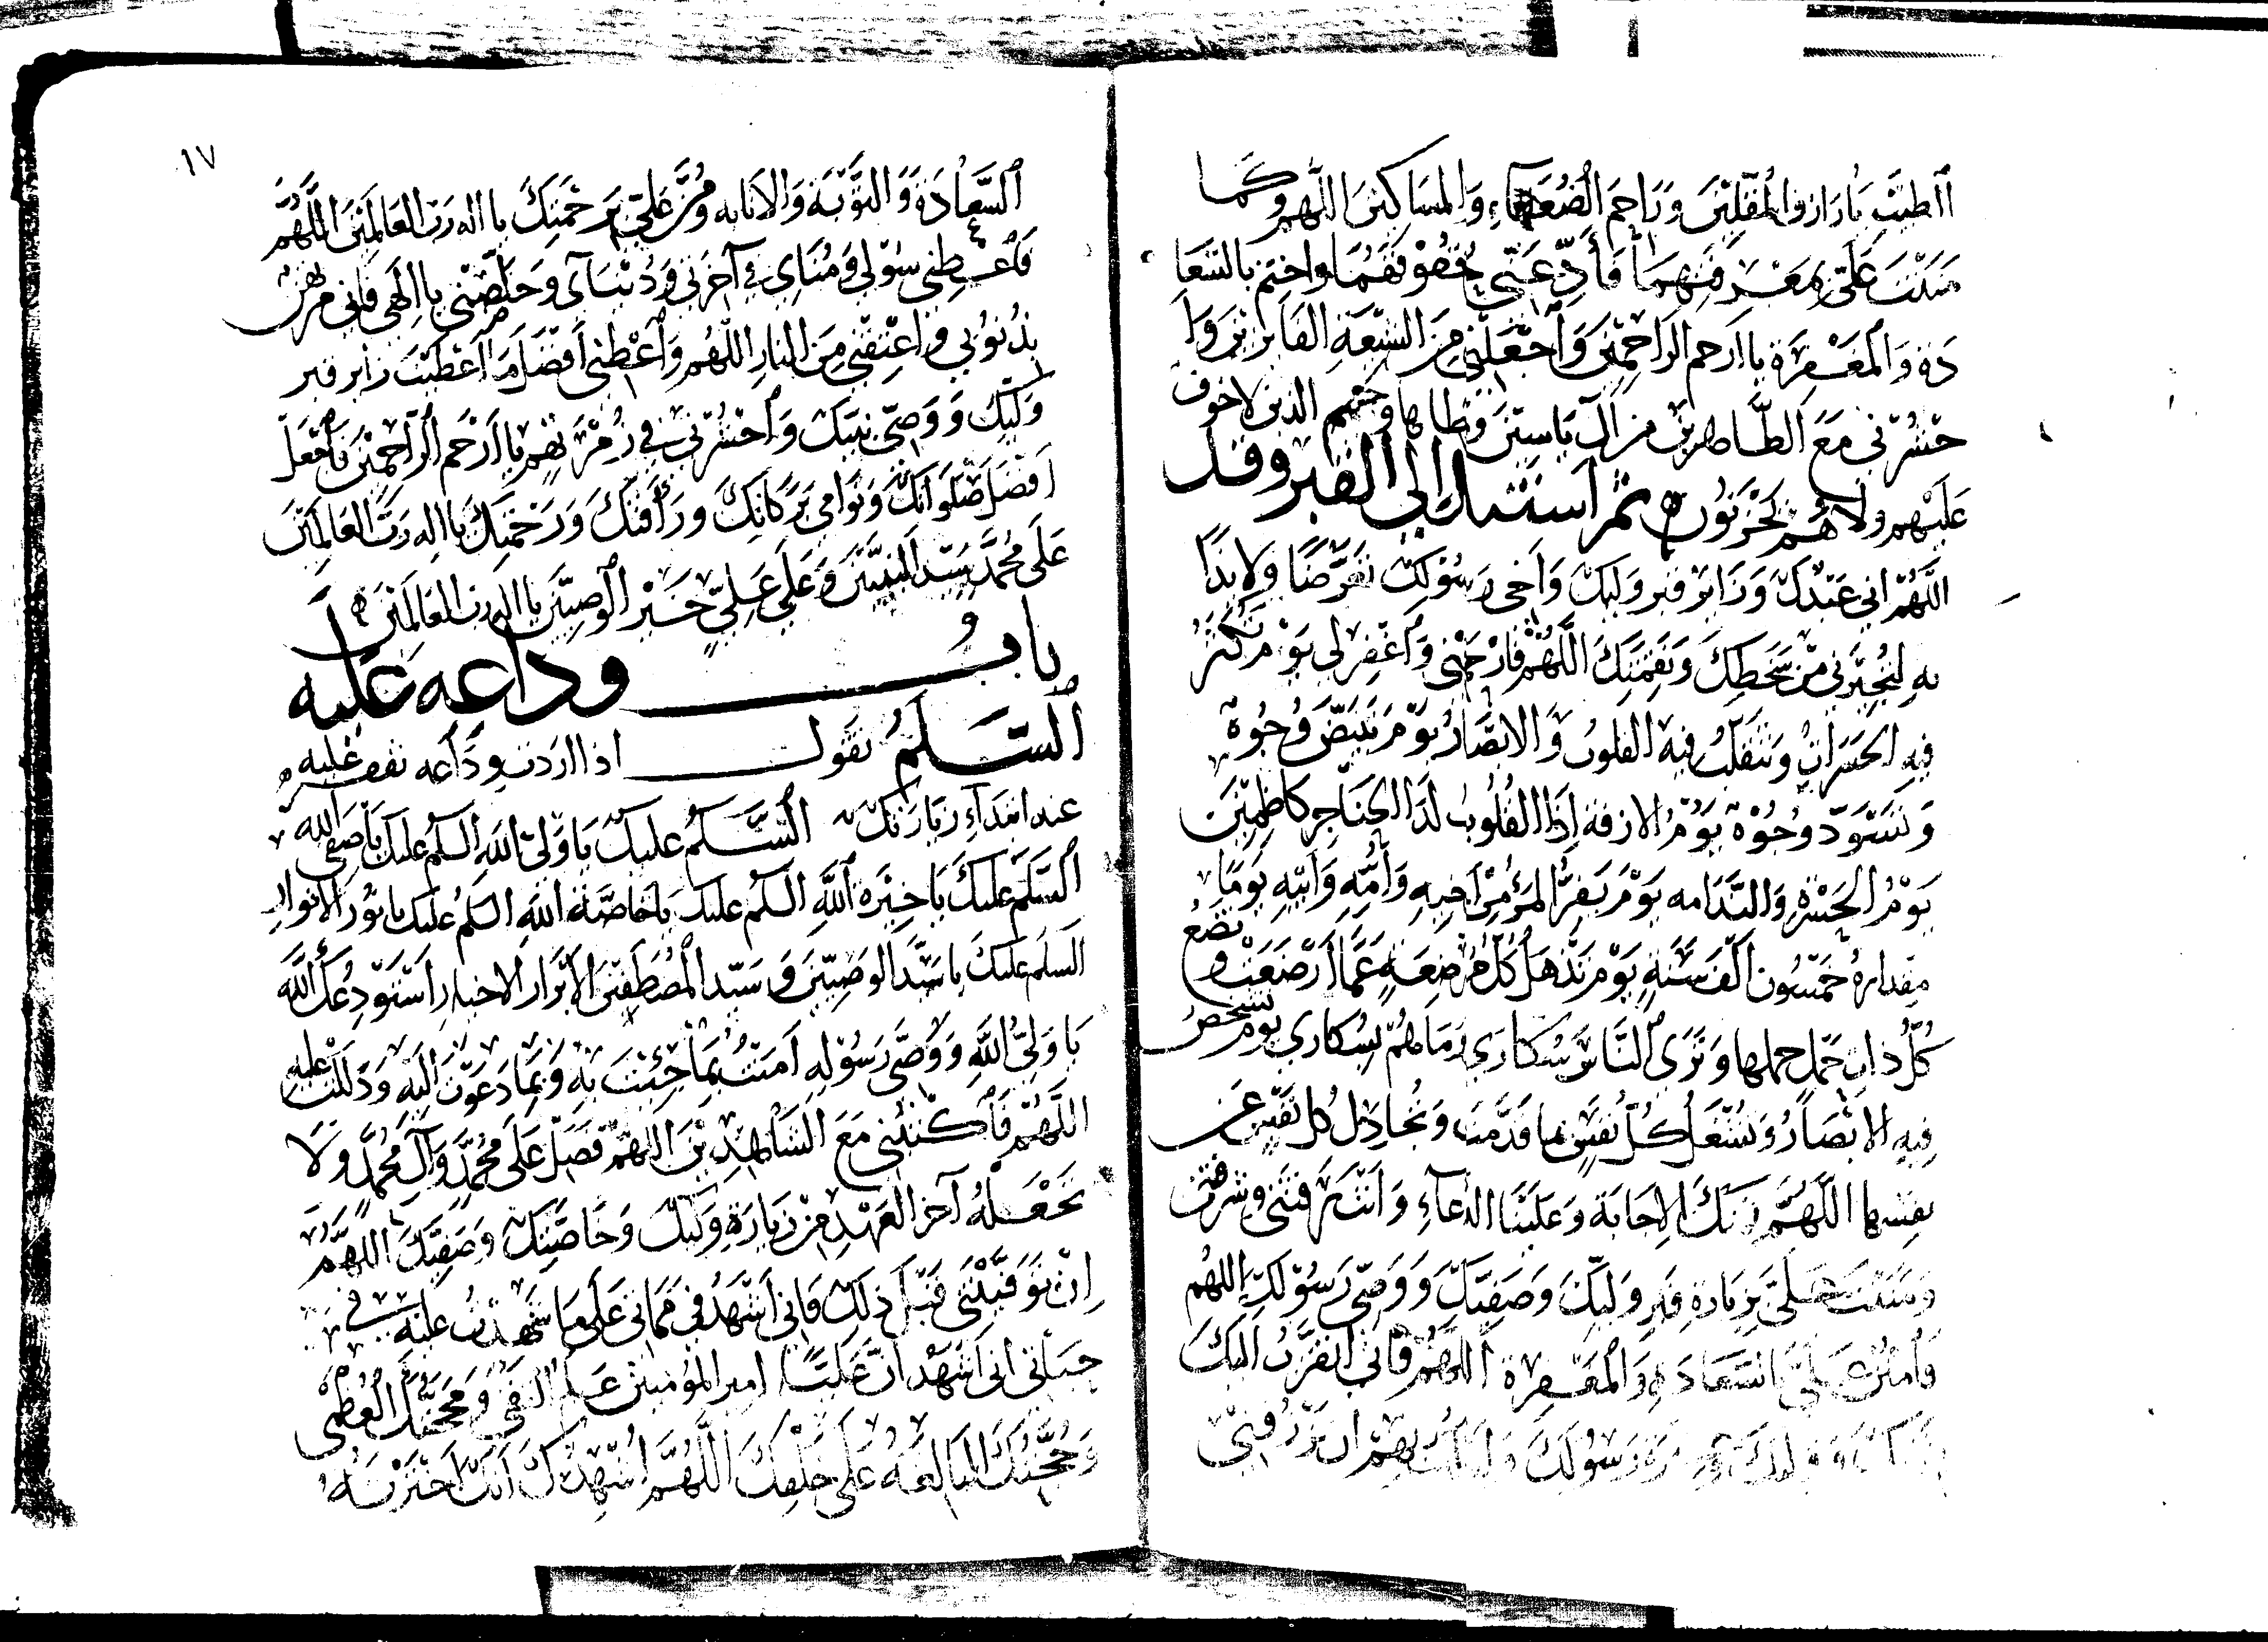 الطيب يا رازق المقلين وراحم الضعفاء والمساكين اللهم وكما
مننت علي بمعرفتهما فأدّ عني حقوقهما واختم بالسعا
دة والمغفرة يا ارحم الراحمين واجعلني من الشيعة الفايزين وا
حشرني مع الطاهرين من آل ياسين وطاها وحم الذين لا خوف
عليهم ولا هم يحزنون ثم استند الى القبر وقل
اللهم اني عبدك وزاير قبر وليك واخي رسولك تعرضا ولايذا
به لتجيرني من سخطك ونقمتك اللهم فارحمني واغفر لي يوم تكثر
فيه الحسرات وتتقلب فيه القلوب والابصار يوم تبيض وجوه
وتسود وجوه يوم الازفة اذا القلوب لدا الحناجر كاظمين
يوم الحسرة والندامه يوم يفر المرء من اخيه وأمه وابيه يوما
مقداره خمسون الف سنة يوم تذهل كل مرضعة عما ارضعت وتضع
كل ذات حمل حملها وترى الناس سكارى وما هم بسكارى يوم تشخص
فيه الابصار وتشغل كل نفس بما قدمت وتجادل كل نفس عن
نفسها اللهم منك الاجابة وعلينا الدعاء وانت عرفتني وشرفتني
ومننت علي بزيارة قبر وليك وصفيك ووصي رسولك اللهم
وامنن علي بالسعادة والمغفرة اللهم فاني اتقرب اليك
رسولك بهم ان ترزقني
١٧
السعادة والتوبة والانابه ومن علي برحمتك يا اله رب العالمين اللهم
فاعطني سؤلي ومناي في آخرتي ودنياي وخلصني يا الهي فاني مرتهن
بذنوبي واعتقني من النار اللهم واعطني افضل ما اعطيت زاير قبر
وليك ووصي نبيك واحشرني في زمرتهم يا ارحم الراحمين واجعل
افضل صلواتك ونوامي بركاتك ورأفتك ورحمتك يا اله رب العالمين
على محمد سيد النبيين وعلى علي خير الوصيين يا اله رب العالمين
باب وداعه عليه
السلم تقول اذا اردت وداعه تقف عليه
عند ابتداء زيارتك السلم عليك يا ولي الله السلم عليك يا صفي الله
السلم عليك يا خيرة الله السلم عليك يا خاصة الله السلم عليك يا نور الانوار
السلم عليك يا سيد الوصيين وسيد المصطفين الابرار الاخيار استودعك الله
يا ولي الله ووصي رسوله امنت بما جئت به وبما دعوت اليه ودللت عليه
اللهم فاكتبني مع الشاهدين اللهم فصل على محمد وآل محمد ولا
تجعله آخر العهد من زيارة وليك وخاصتك وصفيك اللهم
ان توفيتني قبل ذلك فاني اشهد في مماتي على ما شهدت عليه في
حياتي اني اشهد ان عليا امير المؤمنين علم التقى ومحجتك العظمى
وحجتك البالغه على خلقك اللهم اشهدك انك اخترته